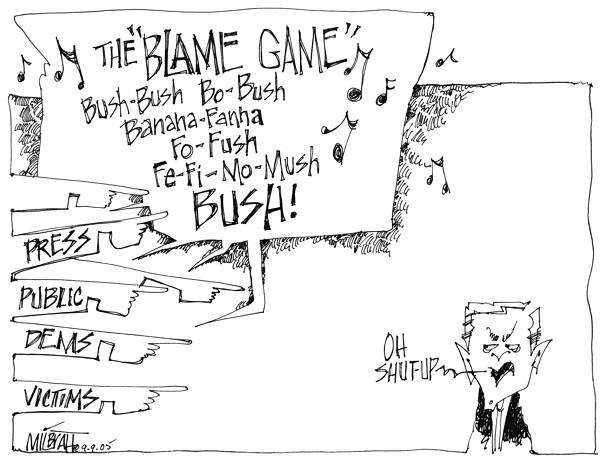 THE "BLAME GAME"
BUSH-BUSH BO-BUSH
BANANA-FANNA
FO-FUSH
FE-FI-MO-MUSH
BUSH!
PRESS
PUBLIC
DEMS
VICTIMS
OH
SHUT-UP
9.9.05